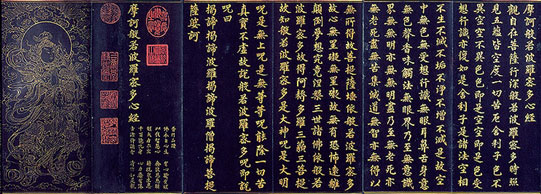 摩訶般若波羅蜜多心經
觀自在菩薩行深般若波羅蜜多時照
見五蘊皆空度一切苦厄舍利子色不
異空空不異色色即是空空即是色受
想行識亦復如是舍利子是諸法空相
不生不滅不垢不淨不增不減是故空
中無色無受想行識無眼耳鼻舌身意
無色聲香味觸法無眼界乃至無意識
界無無明亦無無明盡乃至無老死亦
無老死盡無苦集滅道無智亦無得以
無所得故菩提薩埵依般若波羅蜜多
故心無罣礙無罣礙故無有恐怖遠離
顛倒夢想究竟涅槃三世諸佛依般若
波羅蜜多故得阿耨多羅三藐三菩提
故知般若波羅蜜多是大神呪是大明
呪是無上呪是無等等呪能除一切苦
真實不虛故說般若波羅蜜多呪即說
呪曰
揭諦揭諦波羅揭諦波羅僧揭諦菩提
薩婆訶